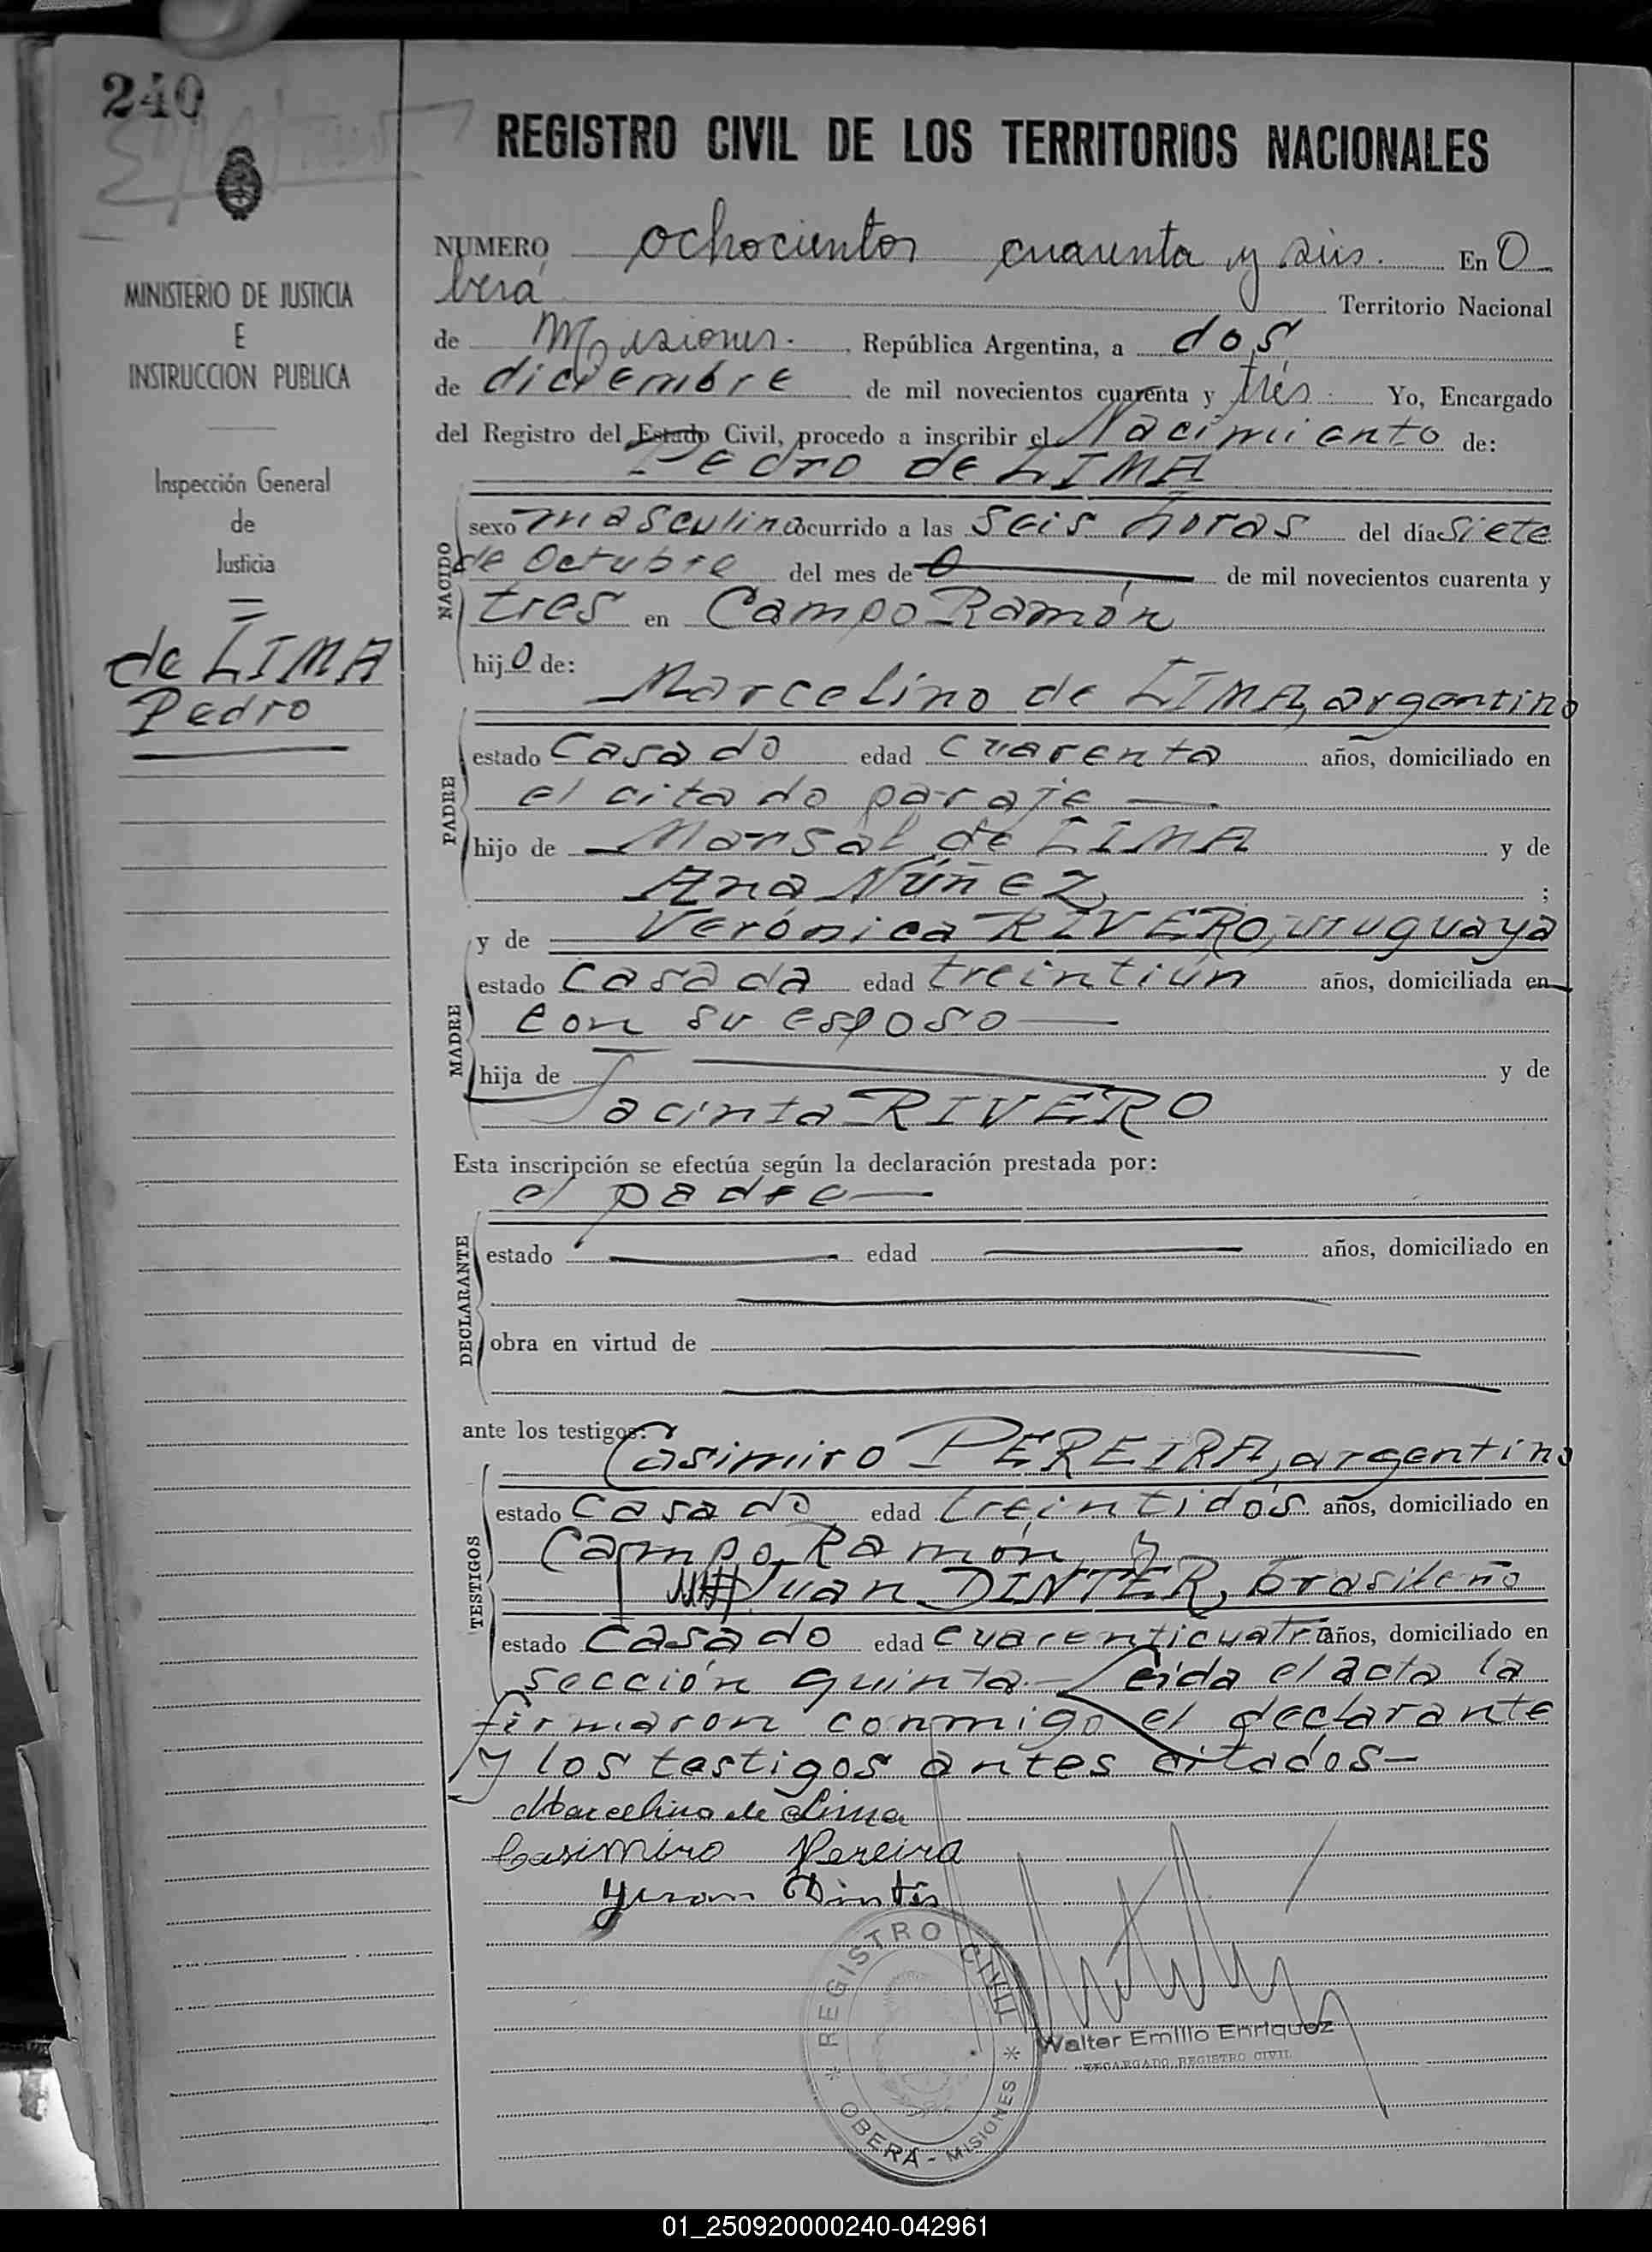 240
REGISTRO CIVIL DE LOS TERRITORIOS NACIONALES
MINISTERIO DE JUSTICIA
E
INSTRUCCION PUBLICA
Inspección General
de
Justicia
de LIMA
Pedro
NUMERO ochocientos cuarenta y seis. En O
berá Territorio Nacional
de Misiones. República Argentina, a dos
de diciembre de mil novecientos cuarenta y tres. Yo, Encargado
del Registro del Estado Civil, procedo a inscribir el Nacimiento de:
Pedro de LIMA
NACIDO
sexo masculino ocurrido a las seis horas del día siete
de Octubre del mes de de mil novecientos cuarenta y
tres en Campo Ramón
hijo de:
Marcelino de LIMA, argentino
PADRE
estado casado edad cuarenta años, domiciliado en
el citado paraje
hijo de Marsal de LIMA y de
Ana Núñez ;
y de Verónica RIVERO, uruguaya
MADRE
estado casada edad treintiún años, domiciliada en
con su esposo
hija de y de
Jacinta RIVERO
Esta inscripción se efectúa según la declaración prestada por:
el padre
DECLARANTE
estado edad años, domiciliado en
obra en virtud de
ante los testigos:
Casimiro PEREIRA, argentino
TESTIGOS
estado casado edad treintidós años, domiciliado en
Campo Ramón, y
Juan DINTER, brasileño
estado casado edad cuarenticuatro años, domiciliado en
sección quinta.- Leida el acta la
firmaron conmigo el declarante
y los testigos antes citados-
Marcelino de Lima
Casimiro Pereira
REGISTRO CIVIL
OBERÁ - MISIONES
Walter Emilio Enriquez
ENCARGADO REGISTRO CIVIL
01_250920000240-042961